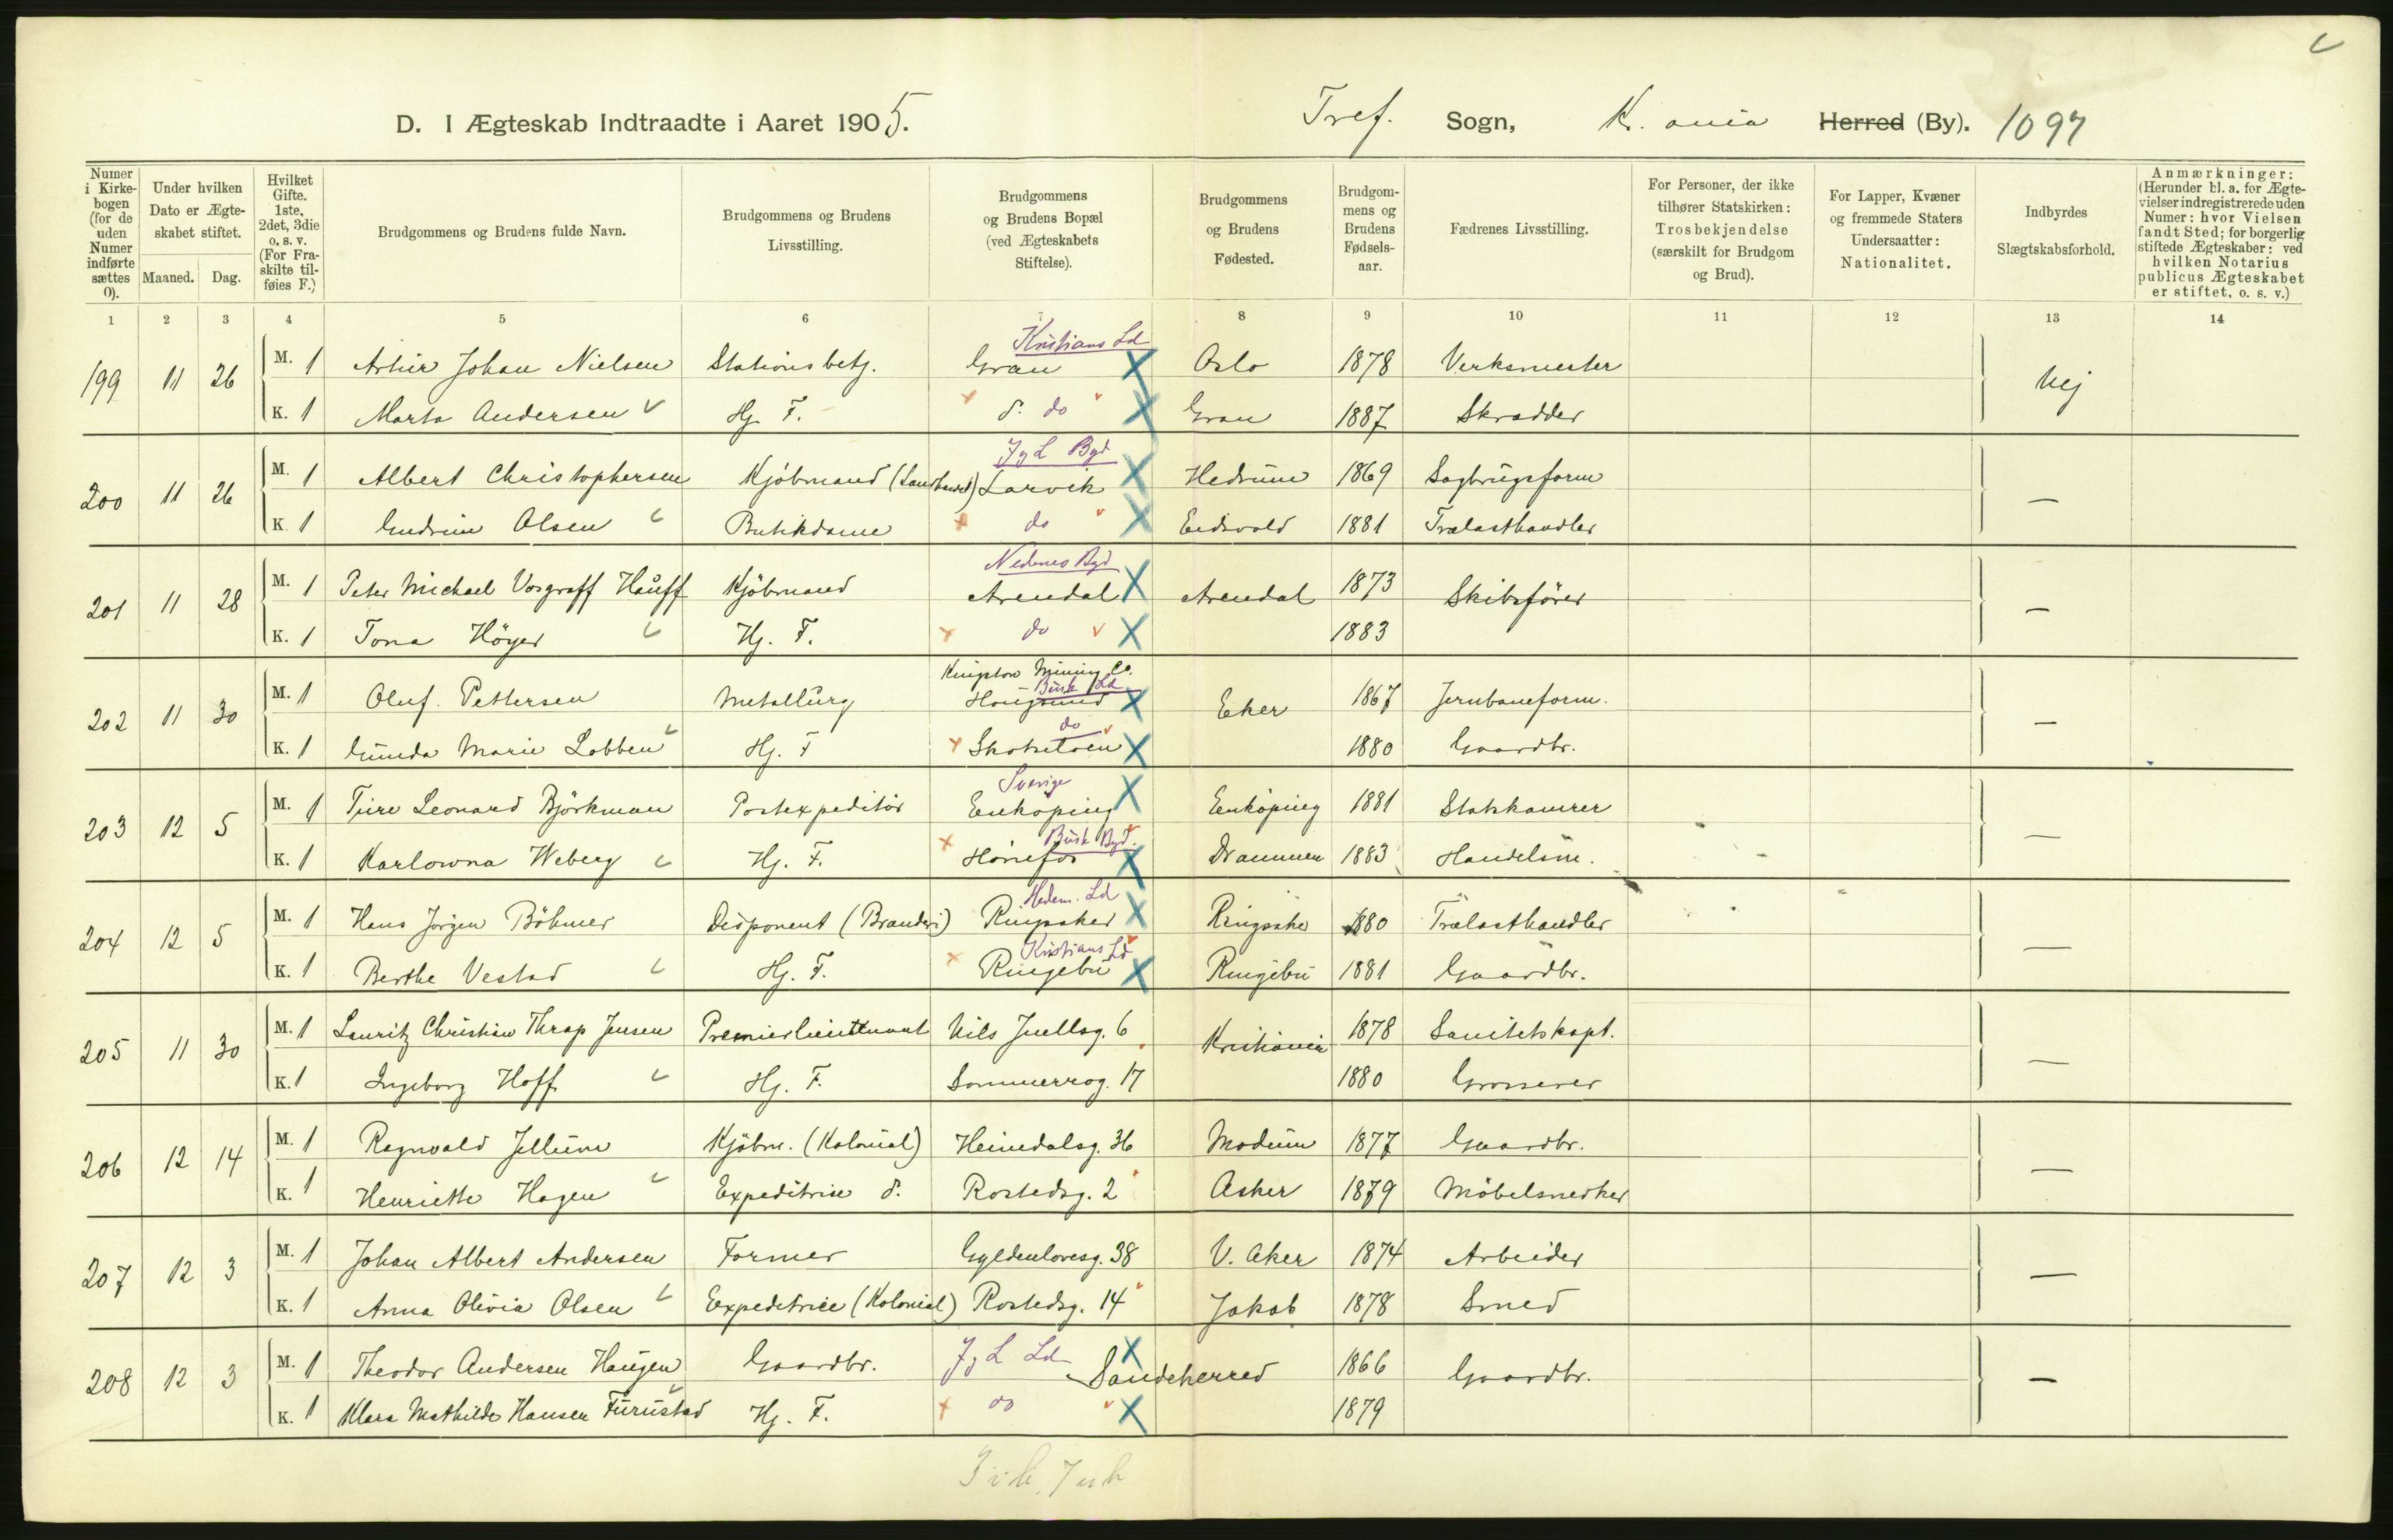 D. I Ægteskab Indtraadte i Aaret 1905. Tref. Sogn, Kr.ania Herred (By). 1097
Numer i Kirke-bogen (for de uden Numer indførte sættes 0).
Under hvilken Dato er Ægte-skabet stiftet.
Maaned. Dag.
Hvilket Gifte. 1ste, 2det, 3die o. s. v. (For Fra-skilte til-føies F.)
Brudgommens og Brudens fulde Navn.
Brudgommens og Brudens Livsstilling.
Brudgommens og Brudens Bopæl (ved Ægteskabets Stiftelse).
Brudgommens og Brudens Fødested.
Brudgom-mens og Brudens Fødsels-aar.
Fædrenes Livsstilling.
For Personer, der ikke tilhører Statskirken: Trosbekjendelse (særskilt for Brudgom og Brud).
For Lapper, Kvæner og fremmede Staters Undersaatter: Nationalitet.
Indbyrdes Slægtskabsforhold.
Anmærkninger: (Herunder bl. a. for Ægte-vielser indregistrerede uden Numer: hvor Vielsen fandt Sted; for borgerlig stiftede Ægteskaber: ved hvilken Notarius publicus Ægteskabet er stiftet, o. s. v.)
1 2 3 4 5 6 7 8 9 10 11 12 13 14
Kristians Ld
199 11 26 M. 1 Artur Johan Nielsen Stationsbetj. Gran Oslo 1878 Verksmester Nej
K. 1 Marta Andersen Hj. F. d. do Gran 1887 Skrædder
J & L Byd
200 11 26 M. 1 Albert Christophersen Kjöbmand (Landhandl) Larvik Hedrum 1869 Sagbrugsform —
K. 1 Gudrun Olsen Butikdame do Eidsvold 1881 Trælasthandler
Nedenes Byd
201 11 28 M. 1 Peter Michael Vosgraff Hauff Kjöbmand Arendal Arendal 1873 Skibsförer —
K. 1 Tona Höyer Hj. F. do 1883
Kingston Mining Co.
Busk Ld
202 11 30 M. 1 Oluf Pettersen Metallurg Hougsund Eker 1867 Jernbaneform. —
do
K. 1 Gunda Marie Lobben Hj. F Skotselven 1880 Gaardbr.
Sverige
203 12 5 M. 1 Ture Leonard Björkman Postexpeditör Enköping Enköping 1881 Statskamrer —
Busk Byd.
K. 1 Karlowna Weberg Hj. F. Hönefos Drammen 1883 Handelsm.
Hedem. Ld
204 12 5 M. 1 Hans Jörgen Böhmer Disponent (Brænderi) Ringsaker Ringsake 1880 Trælasthandler —
Kristians Ld
K. 1 Berthe Vestad Hj. F. Ringebu Ringebu 1881 Gaardbr.
205 11 30 M. 1 Lauritz Christian Thrap Jensen Premierlieutenant Nils Juellsg. 6 Kristiania 1878 Sanitetskapt. —
K. 1 Ingeborg Hoff Hj. F. Sommerrog. 17 1880 Grosserer
206 12 14 M. 1 Ragnvald Jellum Kjöbm. (Kolonial) Heimdalsg. 36 Modum 1877 Gaardbr. —
K. 1 Henriette Hagen Expeditrise d. Rostedsg. 2 Asker 1879 Möbelsnedker
207 12 3 M. 1 Johan Albert Andersen Former Gyldenlovesg. 38 V. Aker 1874 Arbeider —
K. 1 Anna Olivia Olsen Expeditrice (Kolonial) Rostedsg. 14 Jakob 1878 Smed
208 12 3 M. 1 Theodor Andersen Haugen Gaardbr. J & L Ld Sandeherred 1866 Gaardbr. —
K. 1 Klara Mathilde Hansen Furustad Hj. F. do 1879